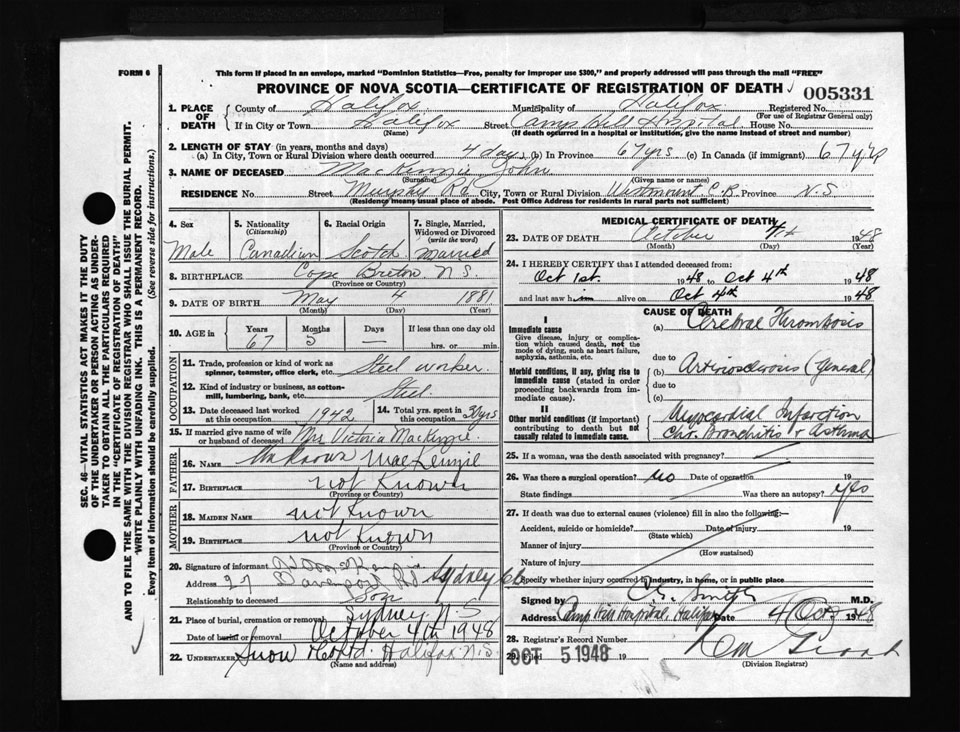 FORM 6
This form if placed in an envelope, marked "Dominion Statistics—Free, penalty for improper use $300," and properly addressed will pass through the mail "FREE"
PROVINCE OF NOVA SCOTIA—CERTIFICATE OF REGISTRATION OF DEATH
005331
1. PLACE OF DEATH
County of Halifax Municipality of Halifax Registered No.
(For use of Registrar General only)
If in City or Town Halifax Street Camp Hill Hospital House No.
(Name) (If death occurred in a hospital or institution, give the name instead of street and number)
2. LENGTH OF STAY (in years, months and days)
(a) In City, Town or Rural Division where death occurred 4 days (b) In Province 67 yrs (c) In Canada (if immigrant) 67 yrs
3. NAME OF DECEASED MacKenzie John
(Surname) (Given name or names)
RESIDENCE No. Street Murphy Rd City, Town or Rural Division Westmount C.B. Province N.S
(Residence means usual place of abode. Post Office Address for residents in rural parts not sufficient)
4. Sex
Male
5. Nationality (Citizenship)
Canadian
6. Racial Origin
Scotch
7. Single, Married, Widowed or Divorced (write the word)
Married
8. BIRTHPLACE Cape Breton N.S.
(Province or Country)
9. DATE OF BIRTH May 4 1881
(Month) (Day) (Year)
10. AGE in
Years Months Days If less than one day old
67 5 — hrs. or min.
OCCUPATION
11. Trade, profession or kind of work as spinner, teamster, office clerk, etc. Steel worker
12. Kind of industry or business, as cotton-mill, lumbering, bank, etc. Steel.
13. Date deceased last worked at this occupation 1942
14. Total yrs. spent in this occupation 30 yrs
15. If married give name of wife or husband of deceased Mrs Victoria MacKenzie.
FATHER
16. NAME Unknown MacKenzie
17. BIRTHPLACE not Known
(Province or Country)
MOTHER
18. MAIDEN NAME not Known
19. BIRTHPLACE not Known
(Province or Country)
20. Signature of informant
Address 27 Davenport Rd Sydney
Relationship to deceased Son
21. Place of burial, cremation or removal Sydney N.S
Date of burial or removal October 4th 1948
22. Undertaker Snow & Co Ltd. Halifax N.S.
(Name and address)
MEDICAL CERTIFICATE OF DEATH
23. DATE OF DEATH October 4th 1948
(Month) (Day) (Year)
24. I HEREBY CERTIFY that I attended deceased from:
Oct 1st. 1948 to Oct 4th 1948
and last saw him alive on Oct 4th 1948
CAUSE OF DEATH
I
Immediate cause
Give disease, injury or complication which caused death, not the mode of dying, such as heart failure, asphyxia, asthenia, etc.
(a) Cerebral Thrombosis
due to
Morbid conditions, if any, giving rise to immediate cause (stated in order proceeding backwards from immediate cause).
(b) Arteriosclerosis (General)
due to
(c)
II
Other morbid conditions (if important) contributing to death but not causally related to immediate cause.
Myocardial Infarction
Chr. Bronchitis & Asthma
25. If a woman, was the death associated with pregnancy?
26. Was there a surgical operation? no Date of operation 19
State findings Was there an autopsy? yes
27. If death was due to external causes (violence) fill in also the following:—
Accident, suicide or homicide? Date of injury 19
(State which)
Manner of injury
(How sustained)
Nature of injury
Specify whether injury occurred in industry, in home, or in public place
Signed by C. S. Smith M.D.
Address Camp Hill Hospital, Halifax Date 4 Oct 1948
28. Registrar's Record Number
29. Filed OCT 5 1948 19
(Division Registrar)
SEC. 46—VITAL STATISTICS ACT MAKES IT THE DUTY OF THE UNDERTAKER OR PERSON ACTING AS UNDERTAKER TO OBTAIN ALL THE PARTICULARS REQUIRED IN THE "CERTIFICATE OF REGISTRATION OF DEATH" AND TO FILE THE SAME WITH THE DIVISION REGISTRAR WHO SHALL ISSUE THE BURIAL PERMIT.
WRITE PLAINLY WITH UNFADING INK. THIS IS A PERMANENT RECORD.
Every item of information should be carefully supplied. (See reverse side for instructions.)